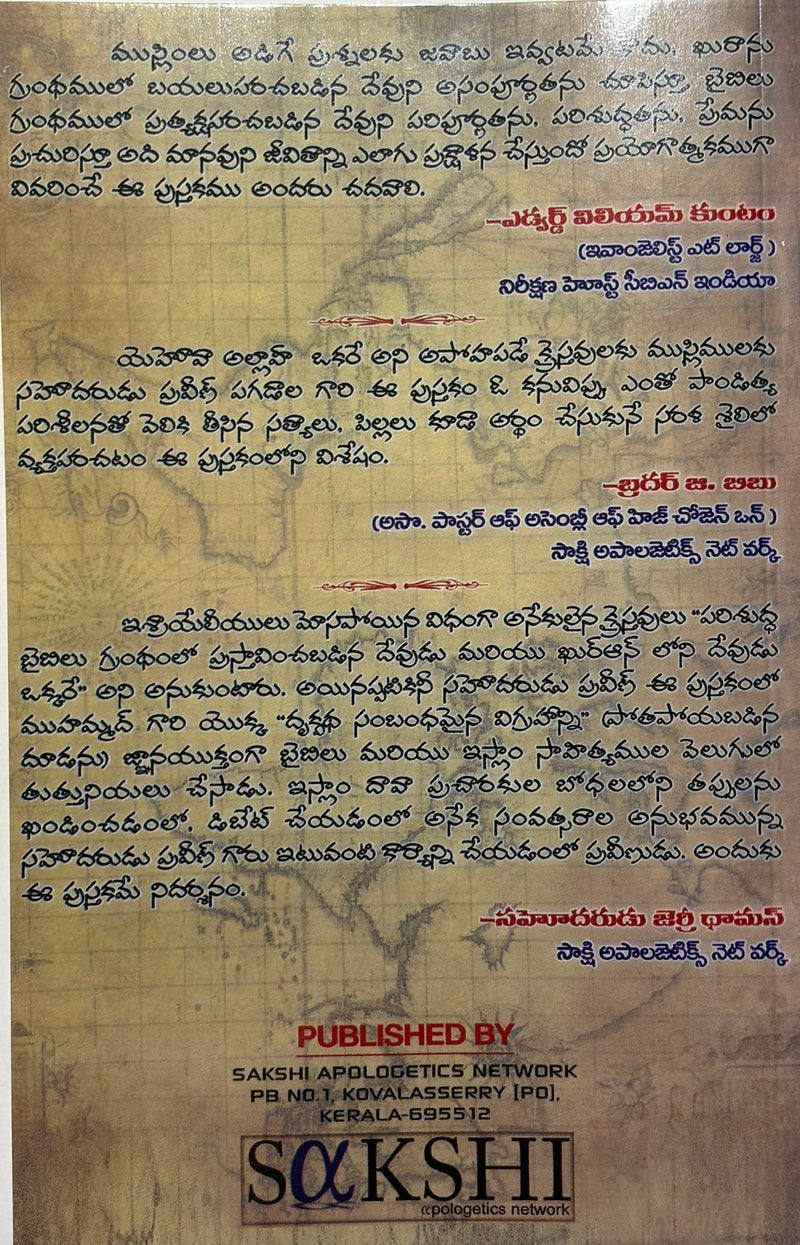 ముస్లింలు అడిగే ప్రశ్నలకు జవాబు ఇవ్వటమే కాదు, ఖురాను
గ్రంథములో బయలుపరచబడిన దేవుని అసంపూర్ణతను చూపిస్తూ, బైబిలు
గ్రంథములో ప్రత్యక్షపరచబడిన దేవుని పరిపూర్ణతను, పరిశుద్ధతను, ప్రేమను
ప్రచురిస్తూ అది మానవుని జీవితాన్ని ఎలాగు ప్రక్షాళన చేస్తుందో ప్రయోగాత్మకముగా
వివరించే ఈ పుస్తకము అందరు చదవాలి.
–ఎడ్వర్డ్ విలియమ్ కుంటం
(ఇవాంజెలిస్ట్ ఎట్ లార్జ్ )
నిరీక్షణ హెూస్ట్ సీబిఎన్ ఇండియా
యెహెూవా అల్లాహ్ ఒకరే అని అపోహపడే క్రైస్తవులకు ముస్లిములకు
సహెూదరుడు ప్రవీణ్ పగడాల గారి ఈ పుస్తకం ఓ కనువిప్పు ఎంతో పాండిత్య
పరిశీలనతో వెలికి తీసిన సత్యాలు, పిల్లలు కూడా అర్థం చేసుకునే సరళ శైలిలో
వ్యక్తపరచటం ఈ పుస్తకంలోని విశేషం.
–బ్రదర్ జి. బిబు
(అసొ. పాస్టర్ ఆఫ్ అసెంబ్లీ ఆఫ్ హిజ్ చోజెన్ ఒన్ )
సాక్షి అపాలజెటిక్స్ నెట్ వర్క్
ఇశ్రాయేలీయులు మోసపోయిన విధంగా అనేకులైన క్రైస్తవులు "పరిశుద్ధ
బైబిలు గ్రంథంలో ప్రస్తావించబడిన దేవుడు మరియు ఖుర్ఆన్ లోని దేవుడు
ఒక్కరే" అని అనుకుంటారు. అయినప్పటికినీ సహెూదరుడు ప్రవీణ్ ఈ పుస్తకంలో
ముహమ్మద్ గారి యొక్క "దృక్పథ సంబంధమైన విగ్రహాన్ని" (పోతపోయబడిన
దూడను) జ్ఞానయుక్తంగా బైబిలు మరియు ఇస్లాం సాహిత్యముల వెలుగులో
తుత్తునియలు చేసాడు. ఇస్లాం దావా ప్రచారకుల బోధలలోని తప్పులను
ఖండించడంలో, డిబేట్ చేయడంలో అనేక సంవత్సరాల అనుభవమున్న
సహెూదరుడు ప్రవీణ్ గారు ఇటువంటి కార్యాన్ని చేయడంలో ప్రవీణుడు. అందుకు
ఈ పుస్తకమే నిదర్శనం.
–సహెూదరుడు జెర్రీ థామస్
సాక్షి అపాలజెటిక్స్ నెట్ వర్క్
PUBLISHED BY
SAKSHI APOLOGETICS NETWORK
PB NO.1, KOVALASSERRY [PO],
KERALA-695512
SαKSHI
αpologetics network